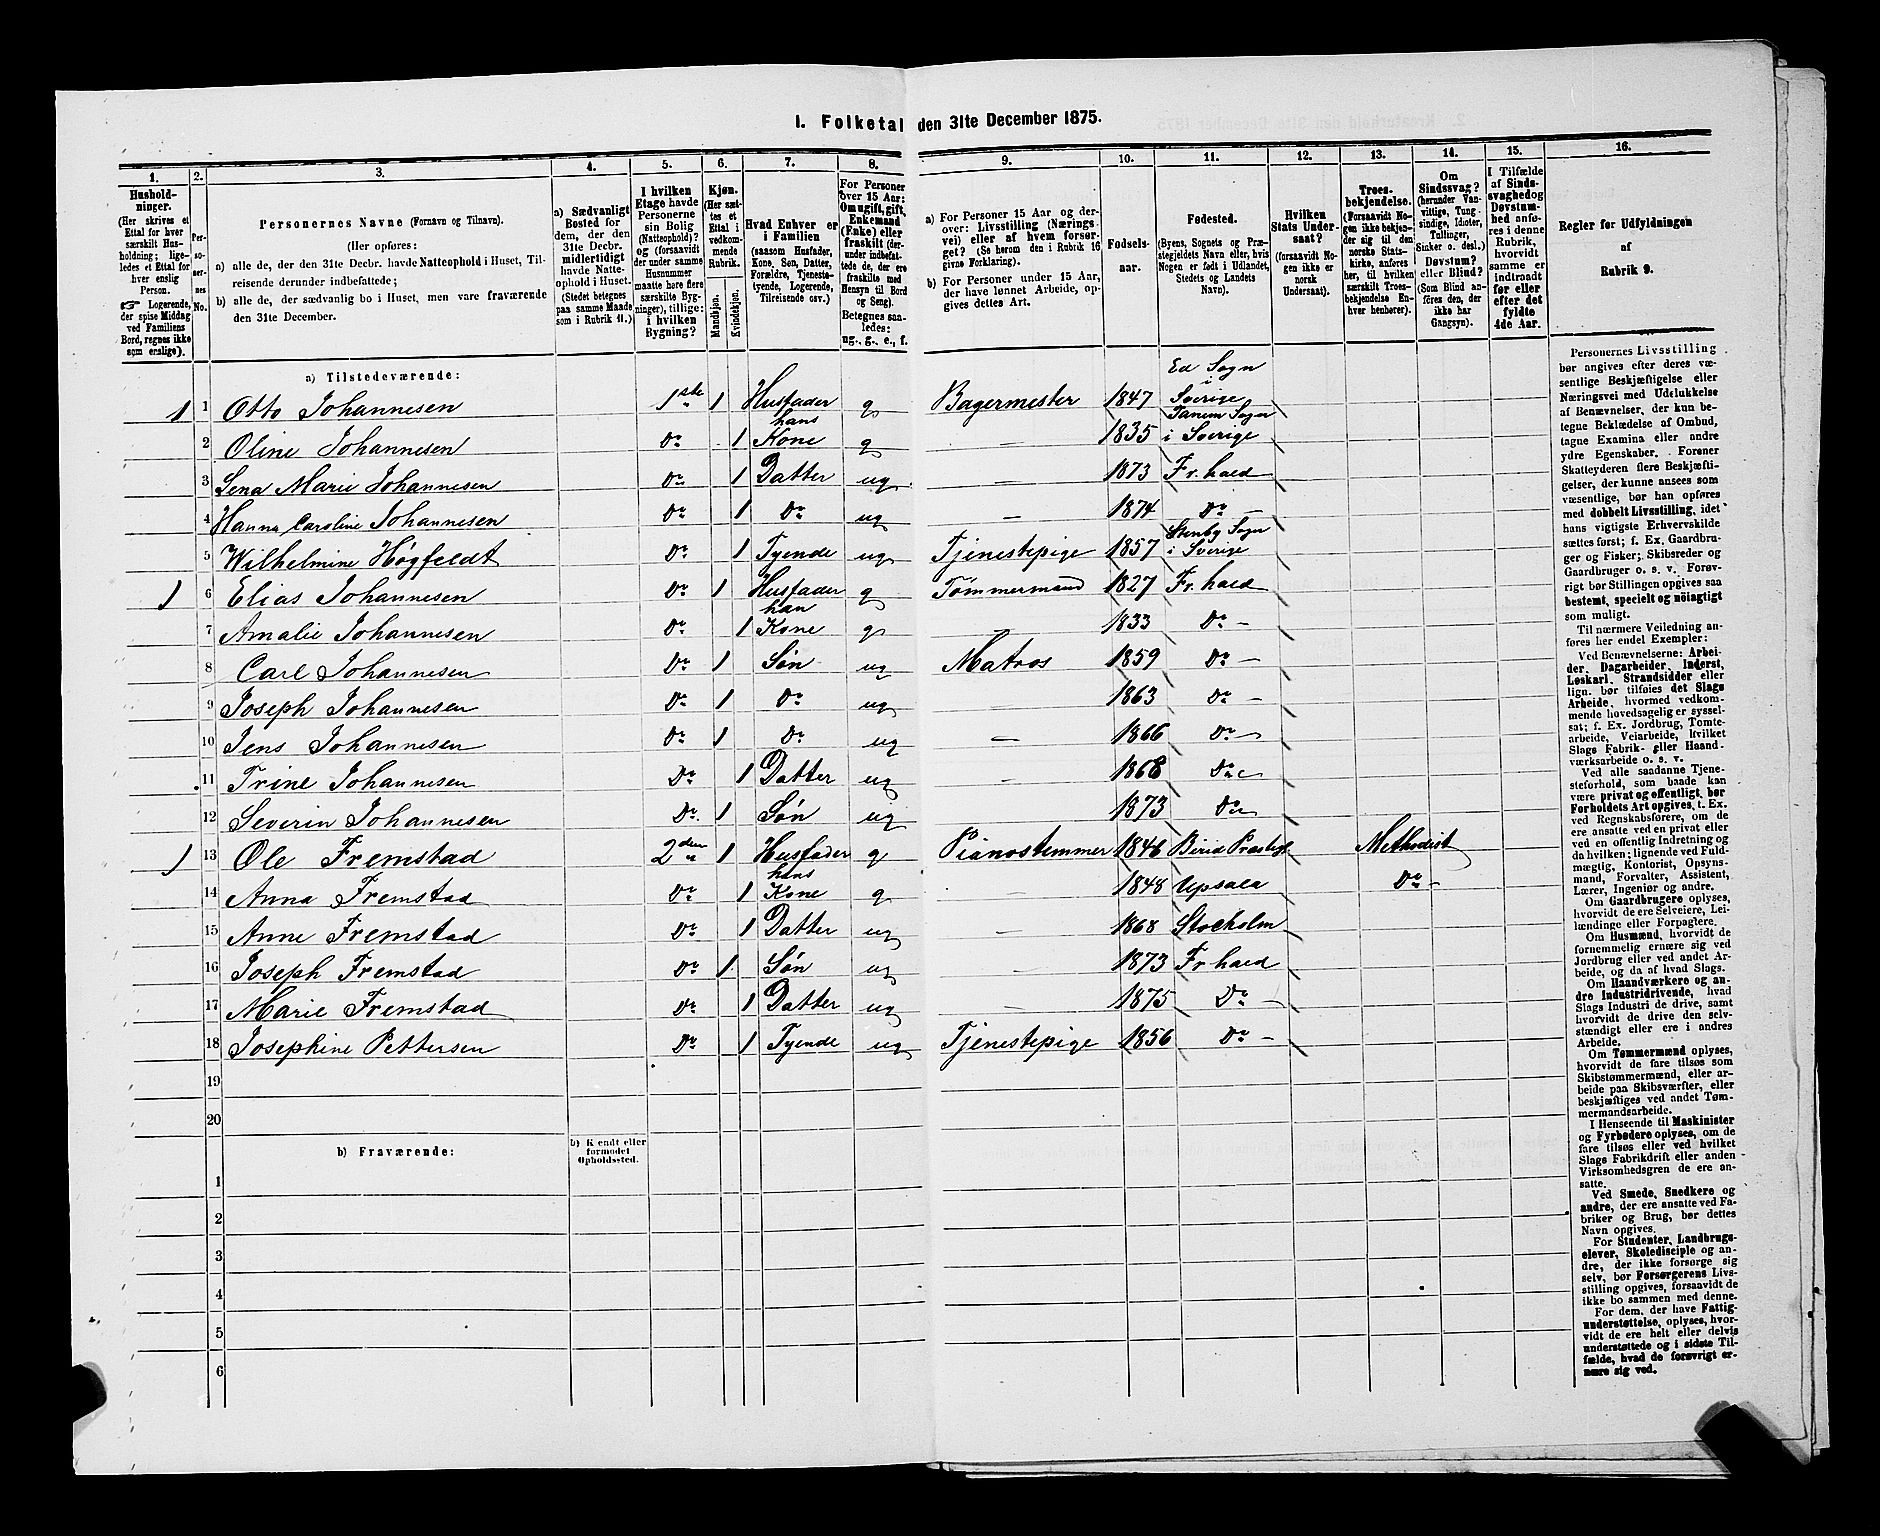 I. Folketal den 31te December 1875.
1. 2. 3. 4. 5. 6. 7. 8. 9. 10. 11. 12. 13. 14. 15. 16.
Hushold-
ninger.
(Her skrives et
Ettal for hver
særskilt Hus-
holdning; lige-
ledes et Ettal for
hver enslig
Person.
☞ Logerende,
der spise Middag
ved Familiens
Bord, regnes ikke
som enslige).
Per-
so-
ner-
nes
No.
Personernes Navne (Fornavn og Tilnavn).
(Her opføres:
a) alle de, der den 31te Decbr. havde Natteophold i Huset, Til-
reisende derunder indbefattede;
b) alle de, der sædvanlig bo i Huset, men vare fraværende
den 31te December.
a) Sædvanligt
Bosted for
dem, der den
31te Decbr.
midlertidigt
havde Natte-
ophold i Huset.
(Stedet betegnes
paa samme Maade
som i Rubrik 11.)
I hvilken
Etage havde
Personerne
sin Bolig
(Natteophold)?
og (forsaavidt
der under samme
Husnummer
maatte høre flere
særskilte Byg-
ninger), tillige:
i hvilken
Bygning?
Kjøn.
(Her sæt-
tes et
Ettal i
vedkom-
mende
Rubrik.
Mandkjøn.
Kvindekjøn.
Hvad Enhver er
i Familien
(saasom Husfader,
Kone, Søn, Datter,
Forældre, Tjeneste-
tyende, Logerende,
Tilreisende osv.)
For Personer
over 15 Aar:
Om ugift, gift,
Enkemand
(Enke) eller
fraskilt (der-
under indbefat-
tede de, der ere
fraskilte med
Hensyn til Bord
og Seng).
Betegnes saa-
ledes:
ug., g., e., f.
a) For Personer 15 Aar og der-
over: Livsstilling (Nærings-
vei) eller af hvem forsør-
get? (Se herom den i Rubrik 16
givne Forklaring).
b) For Personer under 15 Aar,
der have lønnet Arbeide, op-
gives dettes Art.
Fødsels-
aar.
Fødested.
(Byens, Sognets og Præ-
stegjeldets Navn eller, hvis
Nogen er født i Udlandet,
Stedets og Landets
Navn).
Hvilken
Stats Under-
saat?
(forsaavidt No-
gen ikke er
norsk
Undersaat).
Troes-
bekjendelse.
(Forsaavidt No-
gen ikke bekjen-
der sig til den
norske Stats-
kirke, anføres
her, til hvilken
særskilt Troes-
bekjendelse En-
hver henhører).
Om
Sindssvag?
(herunder Van-
vittige, Tung-
sindige, Idioter,
Tullinger,
Sinker o. desl.)
Døvstum?
eller Blind?
(Som Blind an-
føres den, der
ikke har
Gangsyn).
I Tilfælde
af Sinds-
svaghed og
Døvstum-
hed anfø-
res i denne
Rubrik,
hvorvidt
samme er
indtraadt
før eller
efter det
fyldte
4de Aar.
Regler for Udfyldningen
af
Rubrik 9.
a) Tilstedeværende:
1 1 Otto Johannesen 1ste 1 Husfader g Bagermester 1847 Ed Sogn i Sverige
2 Oline Johannesen Do 1 hans Kone g — 1835 Tanem Sogn i Sverige
3 Lena Marie Johannesen Do 1 Datter ug — 1873 Fr.hald
4 Hanna Caroline Johannesen Do 1 Do ug — 1874 Do —
5 Wilhelmine Høgfeldt Do 1 Tyende ug Tjenestepige 1857 Stenby Sogn i Sverige
1 6 Elias Johannesen Do 1 Husfader g Tømmermand 1827 Fr.hald
7 Amalie Johannesen Do 1 han Kone g — 1833 Do —
8 Carl Johannesen Do 1 Søn ug Matros 1859 Do —
9 Joseph Johannesen Do 1 Do ug — 1863 Do —
10 Jens Johannesen Do 1 Do ug — 1866 Do —
11 Trine Johannesen Do 1 Datter ug — 1868 Do
12 Severin Johannesen Do 1 Søn ug — 1873 Do
1 13 Ole Fremstad 2den 1 Husfader g Pianostemmer 1846 Birid Præstgl Methodist
14 Anna Fremstad Do 1 hans Kone g — 1848 Upsala Do —
15 Anne Fremstad Do 1 Datter ug — 1868 Stocholm
16 Joseph Fremstad Do 1 Søn ug — 1873 Fr hald
17 Marie Fremstad Do 1 Datter ug — 1875 Do —
18 Josephine Pettersen Do 1 Tyende ug Tjenestepige 1856 Do —
19
20
b) Fraværende:
b) Kendt eller
formodet
Opholdssted.
1
2
3
4
5
6
Personernes Livsstilling
bør angives efter deres væ-
sentlige Beskjæftigelse eller
Næringsvei med Udelukkelse
af Benævnelser, der kun be-
tegne Beklædelse af Ombud,
tagne Examina eller andre
ydre Egenskaber. Forener
Skatteyderen flere Beskjæfti-
gelser, der kunne ansees som
væsentlige, bør han opføres
med dobbelt Livsstilling, idet
hans vigtigste Erhvervskilde
sættes først; f. Ex. Gaardbru-
ger og Fisker; Skibsreder og
Gaardbruger o. s. v. Forøv-
rigt bør Stillingen opgives saa
bestemt, specielt og nöiagtigt
som muligt.
Til nærmere Veiledning an-
føres her endel Exempler:
Ved Benævnelserne: Arbei-
der, Dagarbeider, Inderst,
Løskarl, Strandsidder eller
lign. bør tilføies det Slags
Arbeide, hvormed vedkom-
mende hovedsagelig er syssel-
sat; f. Ex. Jordbrug, Tomte-
arbeide, Veiarbeide, hvilket
Slags Fabrik- eller Haand-
værksarbeide o. s. v.
Ved alle saadanne Tjene-
steforhold, som baade kan
være privat og offentligt, bør
Forholdets Art opgives, t. Ex.
ved Regnskabsførere, om de
ere ansatte ved en privat eller
ved en offentlig Indretning og
da hvilken; lignende ved Fuld-
mægtig, Kontorist, Opsyns-
mand, Forvalter, Assistent,
Lærer, Ingeniør og andre.
Om Gaardbrugere oplyses,
hvorvidt de ere Selveiere, Lei-
lændinge eller Forpagtere.
Om Husmænd, hvorvidt de
fornemmelig ernære sig ved
Jordbrug eller ved andet Ar-
beide, og da af hvad Slags.
Om Haandværkere og an-
dre Industridrivende, hvad
Slags Industri de drive, samt
hvorvidt de drive den selv-
stændigt eller ere i andres
Arbeide.
Om Tømmermænd oplyses,
hvorvidt de fare tilsøs som
Skibstømmermænd, eller ar-
beide paa Skibsværfter, eller
beskjæftiges ved andet Tøm-
mermandsarbeide.
I Henseende til Maskinister
og Fyrbødere oplyses, om de
fare tilsøs eller ved hvilket
Slags Fabrikdrift eller anden
Virksomhedsgren de ere an-
satte.
Ved Smede, Snedkere og
andre, der ere ansatte ved Fa-
briker og Brug, bør dettes
Navn opgives.
For Studenter, Landbrugs-
elever, Skoledisciple og an-
dre, der ikke forsørge sig
selv, bør Forsørgerens Livs-
stilling opgives, forsaavidt de
ikke bo sammen med denne.
For dem, der have Fattig-
understøttelse, oplyses, hvor-
vidt de ere helt eller delvis
understøttede og i sidste Til-
fælde, hvad de forøvrigt er-
nære sig ved.